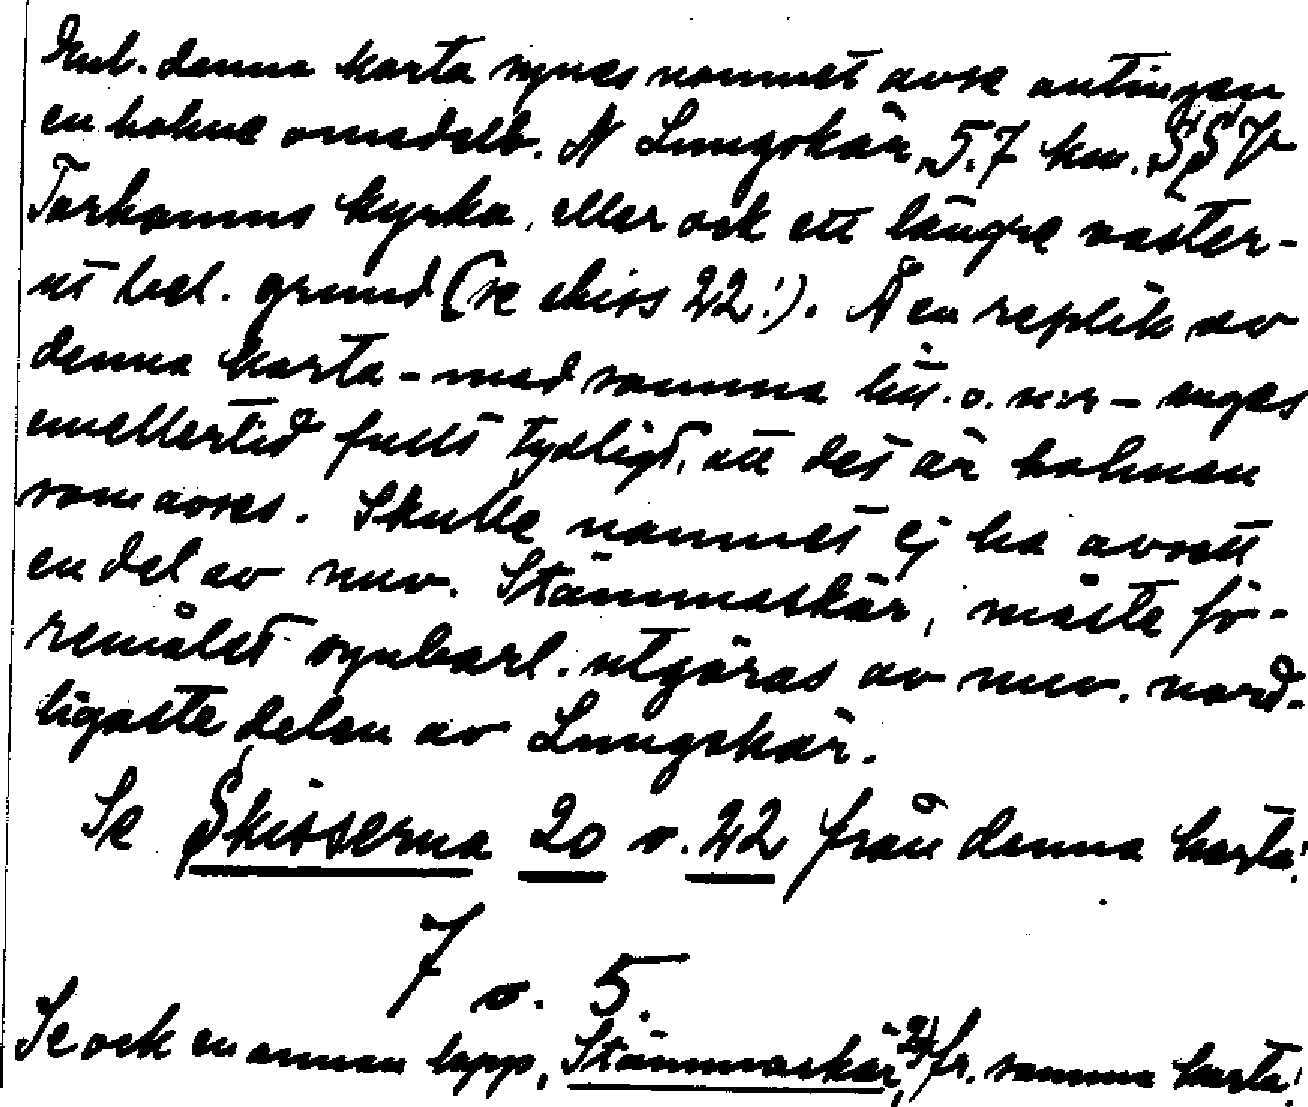 Enl. denna karta synes namnet avse antingen
en holme omedelb. N Lungskär, 5.7 km. SSV
Torhamns kyrka, eller ock ett längre väster-
ut bel. grund (se skiss 22!). Å en replik av
denna karta - med samma litt. o. n:r - anges
emellertid fullt tydligt, att det är holmen
som avses. Skulle namnet ej ha avsett
en del av nuv. Stämmaskär, måste fö-
remålet synbarl. utgöras av nuv. nord-
ligaste delen av Lungskär.
Se Skisserna 20 o. 22 från denna karta!
7 o. 5.
Se ock en annan lapp, Stämmaskär, fr. samma karta!